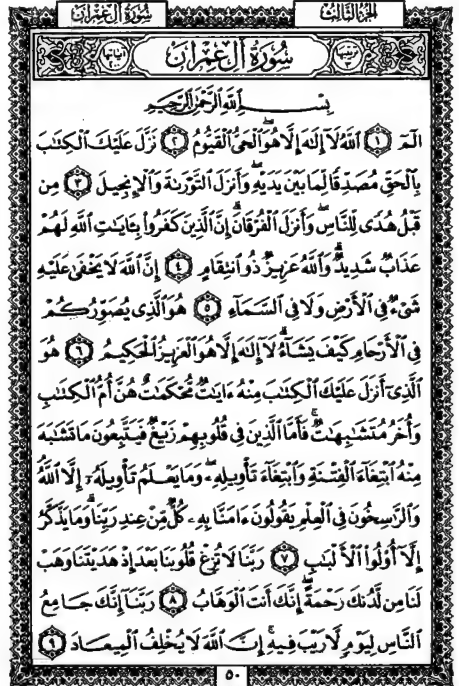 الجزء الثالث سورة آل عمران
سورة آل عمران
بِسْمِ ٱللَّهِ ٱلرَّحْمَٰنِ ٱلرَّحِيمِ
الٓمٓ ١ ٱللَّهُ لَآ إِلَٰهَ إِلَّا هُوَ ٱلْحَىُّ ٱلْقَيُّومُ ٢ نَزَّلَ عَلَيْكَ ٱلْكِتَٰبَ
بِٱلْحَقِّ مُصَدِّقًا لِّمَا بَيْنَ يَدَيْهِ وَأَنزَلَ ٱلتَّوْرَىٰةَ وَٱلْإِنجِيلَ ٣ مِن
قَبْلُ هُدًى لِّلنَّاسِ وَأَنزَلَ ٱلْفُرْقَانَ ۗ إِنَّ ٱلَّذِينَ كَفَرُوا۟ بِـَٔايَٰتِ ٱللَّهِ لَهُمْ
عَذَابٌ شَدِيدٌ ۗ وَٱللَّهُ عَزِيزٌ ذُو ٱنتِقَامٍ ٤ إِنَّ ٱللَّهَ لَا يَخْفَىٰ عَلَيْهِ
شَىْءٌ فِى ٱلْأَرْضِ وَلَا فِى ٱلسَّمَآءِ ٥ هُوَ ٱلَّذِى يُصَوِّرُكُمْ
فِى ٱلْأَرْحَامِ كَيْفَ يَشَآءُ ۚ لَآ إِلَٰهَ إِلَّا هُوَ ٱلْعَزِيزُ ٱلْحَكِيمُ ٦ هُوَ
ٱلَّذِىٓ أَنزَلَ عَلَيْكَ ٱلْكِتَٰبَ مِنْهُ ءَايَٰتٌ مُّحْكَمَٰتٌ هُنَّ أُمُّ ٱلْكِتَٰبِ
وَأُخَرُ مُتَشَٰبِهَٰتٌ ۖ فَأَمَّا ٱلَّذِينَ فِى قُلُوبِهِمْ زَيْغٌ فَيَتَّبِعُونَ مَا تَشَٰبَهَ
مِنْهُ ٱبْتِغَآءَ ٱلْفِتْنَةِ وَٱبْتِغَآءَ تَأْوِيلِهِۦ ۗ وَمَا يَعْلَمُ تَأْوِيلَهُۥٓ إِلَّا ٱللَّهُ ۗ
وَٱلرَّٰسِخُونَ فِى ٱلْعِلْمِ يَقُولُونَ ءَامَنَّا بِهِۦ كُلٌّ مِّنْ عِندِ رَبِّنَا ۗ وَمَا يَذَّكَّرُ
إِلَّآ أُو۟لُوا۟ ٱلْأَلْبَٰبِ ٧ رَبَّنَا لَا تُزِغْ قُلُوبَنَا بَعْدَ إِذْ هَدَيْتَنَا وَهَبْ
لَنَا مِن لَّدُنكَ رَحْمَةً ۚ إِنَّكَ أَنتَ ٱلْوَهَّابُ ٨ رَبَّنَآ إِنَّكَ جَامِعُ
ٱلنَّاسِ لِيَوْمٍ لَّا رَيْبَ فِيهِ ۚ إِنَّ ٱللَّهَ لَا يُخْلِفُ ٱلْمِيعَادَ ٩
٥٠